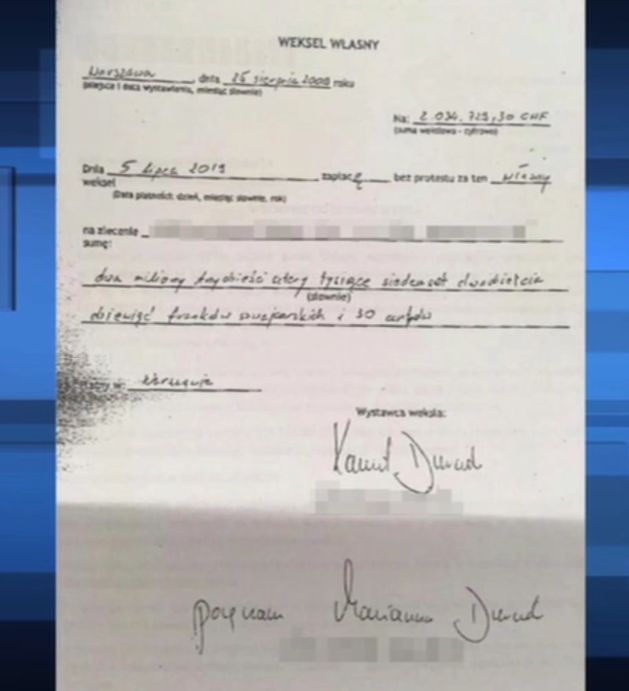 WEKSEL WŁASNY
Warszawa, dnia 25 sierpnia 2008 roku
(miejsce i data wystawienia, miesiąc słownie)
Na: 2.034.729,30 CHF
(suma wekslowa - cyfrowo)
Dnia 5 lipca 2019 zapłacę bez protestu za ten własny
weksel
(Data płatności: dzień, miesiąc słownie, rok)
na zlecenie
sumę:
dwa miliony trzydzieści cztery tysiące siedemset dwadzieścia
(słownie)
dziewięć franków szwajcarskich i 30
w: Warszawie
Wystawca weksla:
Kamil
poręczam Marianna